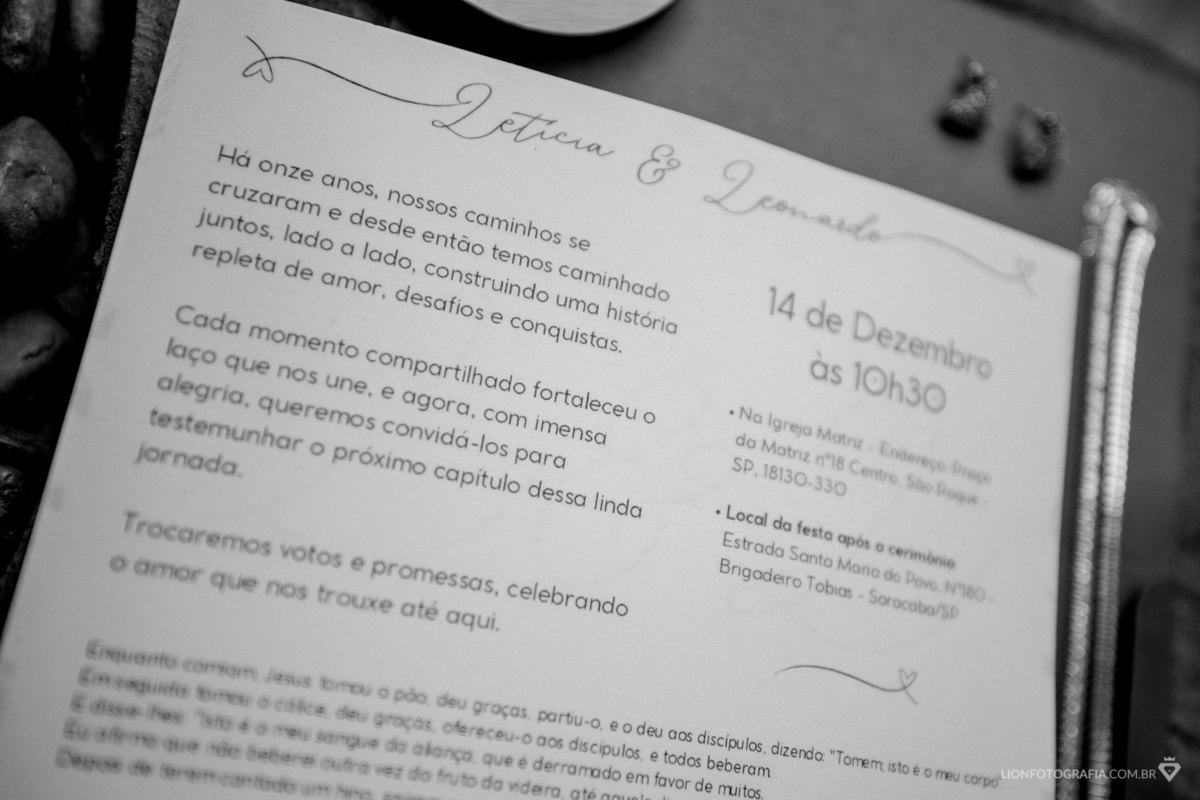 Letícia & Leonardo
Há onze anos, nossos caminhos se
cruzaram e desde então temos caminhado
juntos, lado a lado, construindo uma história
repleta de amor, desafios e conquistas.
Cada momento compartilhado fortaleceu o
laço que nos une, e agora, com imensa
alegria, queremos convidá-los para
testemunhar o próximo capítulo dessa linda
jornada.
Trocaremos votos e promessas, celebrando
o amor que nos trouxe até aqui.
14 de Dezembro
às 10h30
• Na Igreja Matriz - Endereço: Praça
da Matriz nº18 Centro, São Roque -
SP, 18130-330
• Local da festa após a cerimônia
Estrada Santa Maria do Povo, Nº180 -
Brigadeiro Tobias - Sorocaba/SP
Enquanto comiam, Jesus tomou o pão, deu graças, partiu-o, e o deu aos discípulos, dizendo: "Tomem; isto é o meu corpo".
Em seguida tomou o cálice, deu graças, ofereceu-o aos discípulos, e todos beberam.
E disse-lhes: "Isto é o meu sangue da aliança, que é derramado em favor de muitos.
Eu afirmo que não beberei outra vez do fruto da videira, até
Depois de terem cantado um hino,
LIONFOTOGRAFIA.COM.BR